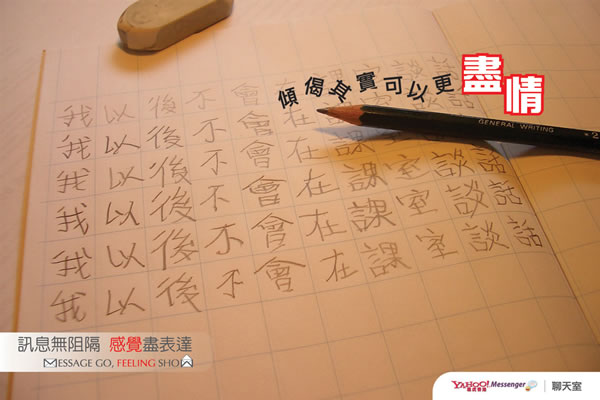 傾偈其實可以更盡情
我以後不會在課室談話
我以後不會在課室談話
我以後不會在課室談話
我以後不會在課室談話
我以後不會在課室談話
我以後不會在課室談話
GENERAL WRITING 2
訊息無阻隔 感覺盡表達
MESSAGE GO, FEELING SHOW
YAHOO! Messenger 聊天室